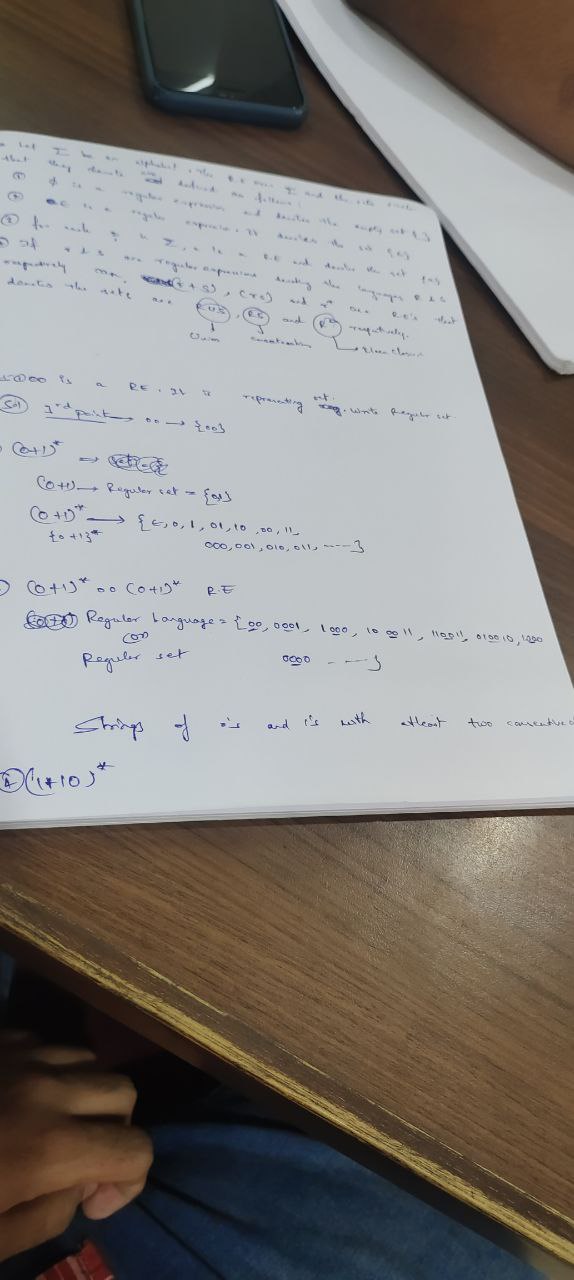 Let Σ be an alphabet. The RE over Σ and the sets
that they denote are defined as follows:
① ϕ is a regular expression and denotes the empty set { }
② ϵ is a regular expression. It denotes the set {ϵ}
③ for each a in Σ, a is a RE and denotes the set {a}
If r & s are regular expressions denoting the languages R & S
respectively (r+s), (rs) and r* are RE's that
denotes the sets are R∪S, RS and R* respectively.
Union Concatenation Kleen Closure
00 is a RE. It is representing set. Write Regular set.
Sol 3rd point → 00 → {00}
(0+1)* ⇒
(0+1) → Regular set = {0,1}
(0+1)* → {ϵ, 0, 1, 01, 10, 00, 11,
{0+1}* 000, 001, 010, 011, ----}
(0+1)* 00 (0+1)* RE
Regular Language = {00, 0001, 1000, 10 00 11, 11001, 010010, 1000
(or)
Regular set 0000 ----}
Strings of 0's and 1's with atleast two consecutive
④ (1+10)*